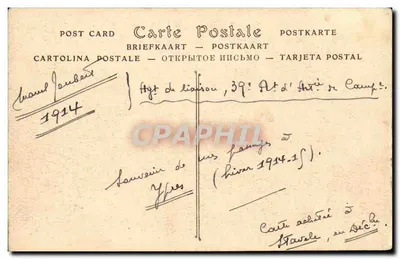 POST CARD Carte Postale POSTKARTE
BRIEFKAART — POSTKAART
CARTOLINA POSTALE — ОТКРЫТОЕ ПИСЬМО — TARJETA POSTAL
Marcel Jaubert
1914
Agt de liaison, 39e Rt d'Artie de Campe.
CPARAMA
Souvenir de mes passages à
Ypres (hiver 1914-15).
Carte achetée à
Stavele, en Déc.